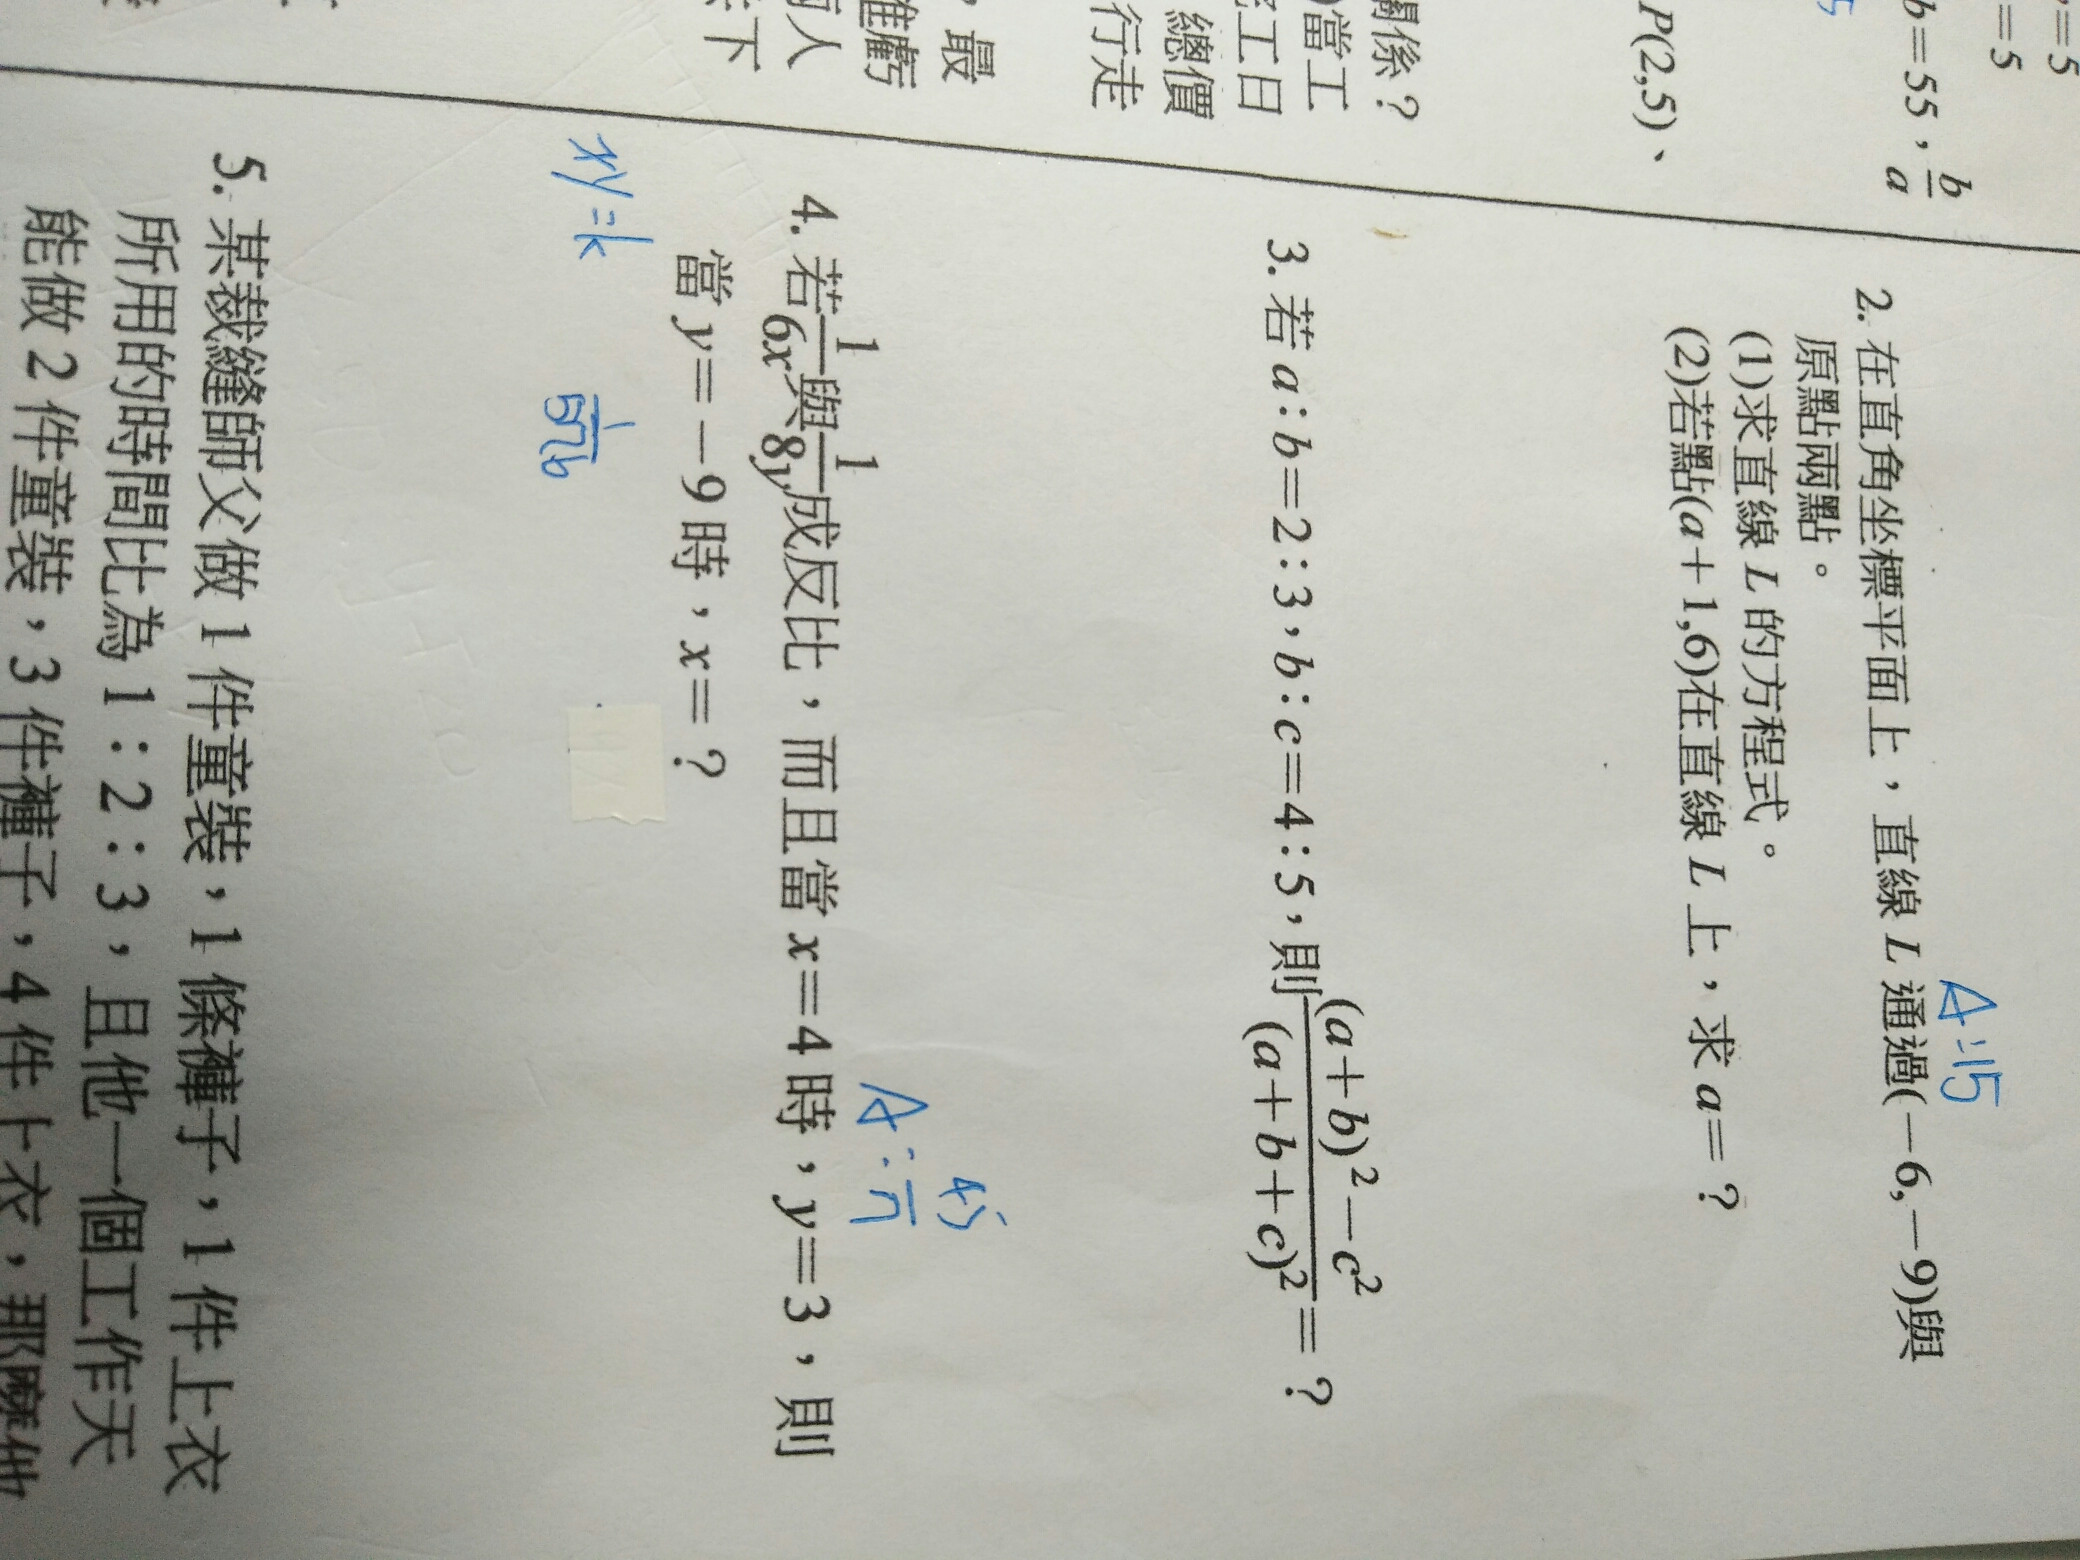 =5
=5
b=55，b/a
P(2,5)、
關係？
當工
工日
總價
行走
，最
誰虧
人
下
A:15
2. 在直角坐標平面上，直線 L 通過(－6,－9)與
原點兩點。
(1)求直線 L 的方程式。
(2)若點(a＋1,6)在直線 L 上，求 a＝？
3. 若 a：b＝2：3，b：c＝4：5，則 (a＋b)²－c²/(a＋b＋c)² ＝？
4. 若 1/6x 與 1/8y 成反比，而且當 x＝4 時，y＝3，則
當 y＝－9 時，x＝？
xy=k
1/576
5. 某裁縫師父做 1 件童裝，1 條褲子，1 件上衣
所用的時間比為 1：2：3，且他一個工作天
能做 2 件童裝，3 件褲子，4 件上衣，那麼他